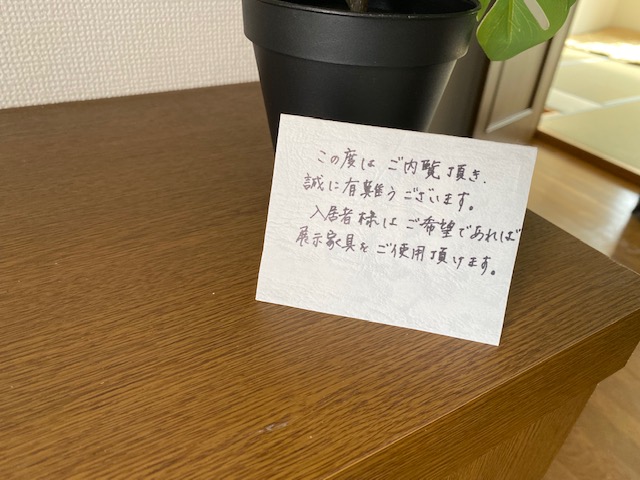 この度は ご内覧頂き、
誠に有難うございます。
入居者様は ご希望であれば
展示家具を ご使用頂けます。